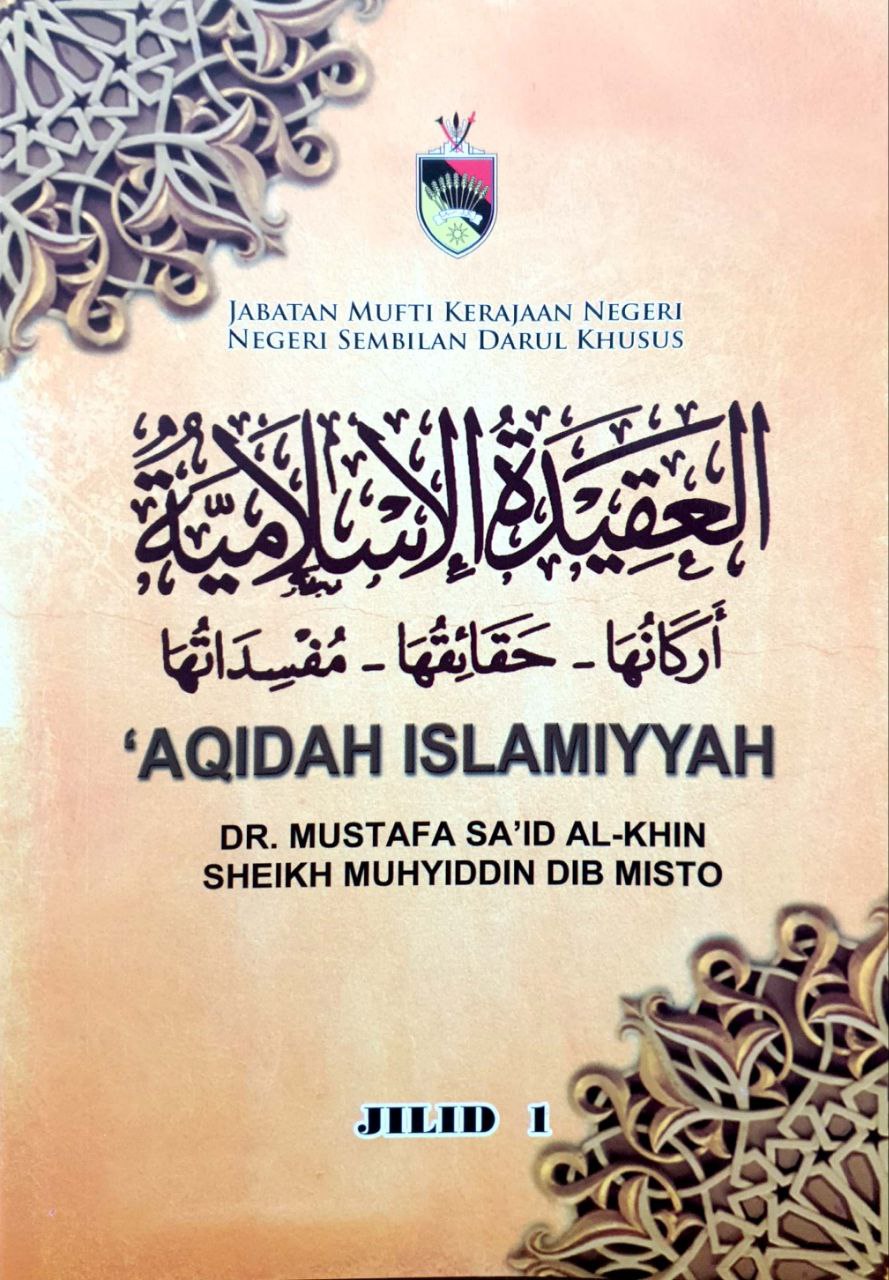 JABATAN MUFTI KERAJAAN NEGERI
NEGERI SEMBILAN DARUL KHUSUS
العَقِيْدَةُ الإِسْلَامِيَّةُ
أَرْكَانُهَا - حَقَائِقُهَا - مُفْسِدَاتُهَا
‘AQIDAH ISLAMIYYAH
DR. MUSTAFA SA’ID AL-KHIN
SHEIKH MUHYIDDIN DIB MISTO
JILID 1